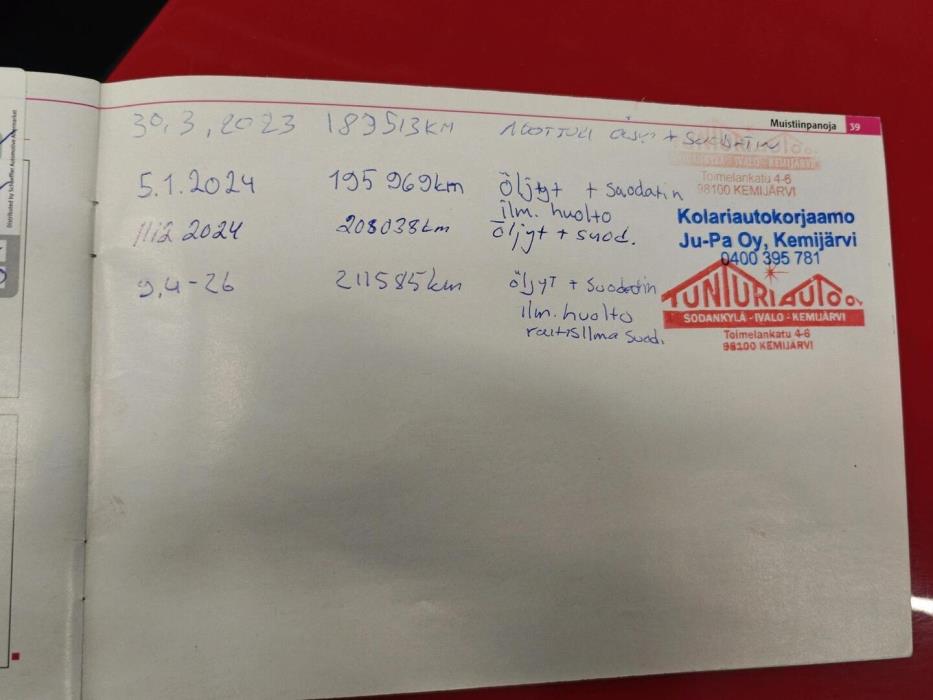 Distributed by Schaeffler Automotive Aftermarket
Muistiinpanoja 39
30.3.2023 189513KM MOOTTORI ÖLJY + SUODATIN
Toimelankatu 4-6
98100 KEMIJÄRVI
5.1.2024 195 969km Öljyt + suodatin
ilm. huolto
Kolariautokorjaamo
Ju-Pa Oy, Kemijärvi
0400 395 781
11.12 2024 208038km Öljyt + suod.
9.4-26 211585km öljyt + suodatin
ilm. huolto
raitisilma suod.
TUNTURIAUTO OY
SODANKYLÄ - IVALO - KEMIJÄRVI
Toimelankatu 4-6
98100 KEMIJÄRVI